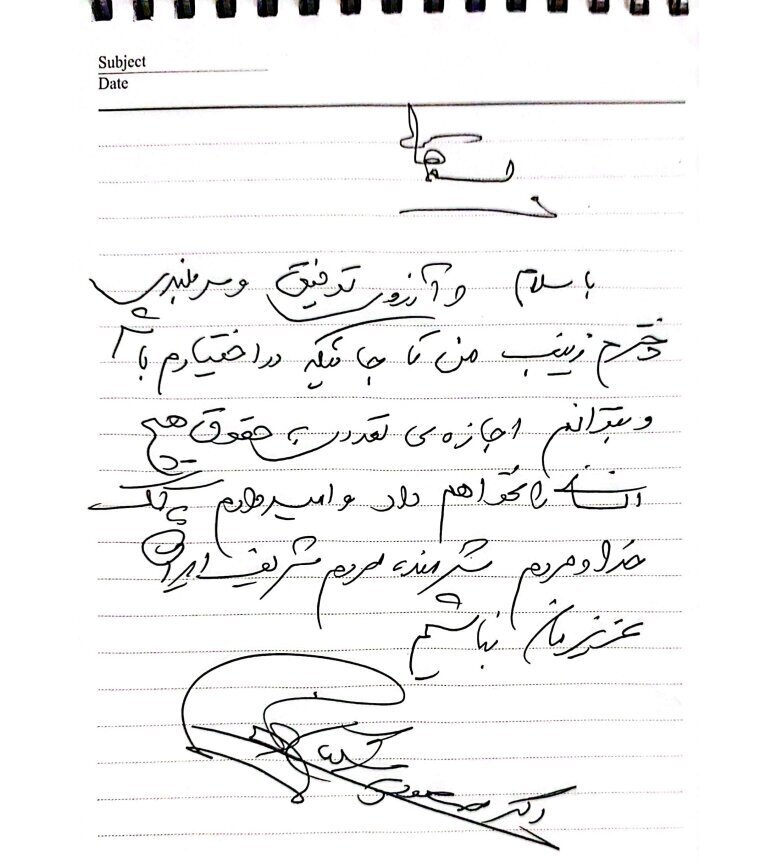 Subject
Date
بسمه تعالی
با سلام و آرزوی توفیق و سربلندی
دخترم زینب من تا جائیکه در اختیارم باشد
و بتوانم اجازه‌ی تعدی به حقوق هیچ
انسانی را نخواهم داد و امیدوارم به کمک
خدا و مردم شرمنده مردم شریف ایران
عزیزمان نباشیم
دکتر مسعود پزشکیان